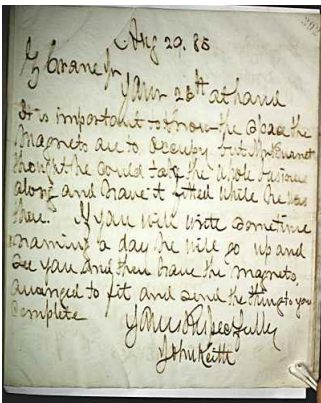 Aug 20, 85
G Crane Jr
Your 20th at hand
It is important to know the space the
Magnets are to occupy but Mr
thought he could take the whole
along and have it fitted while he was
there. If you will write sometime
naming a day he will go up and
see you and then have the magnets
arranged to fit and send the thing to you
Complete
Yours Respectfully
John Keith